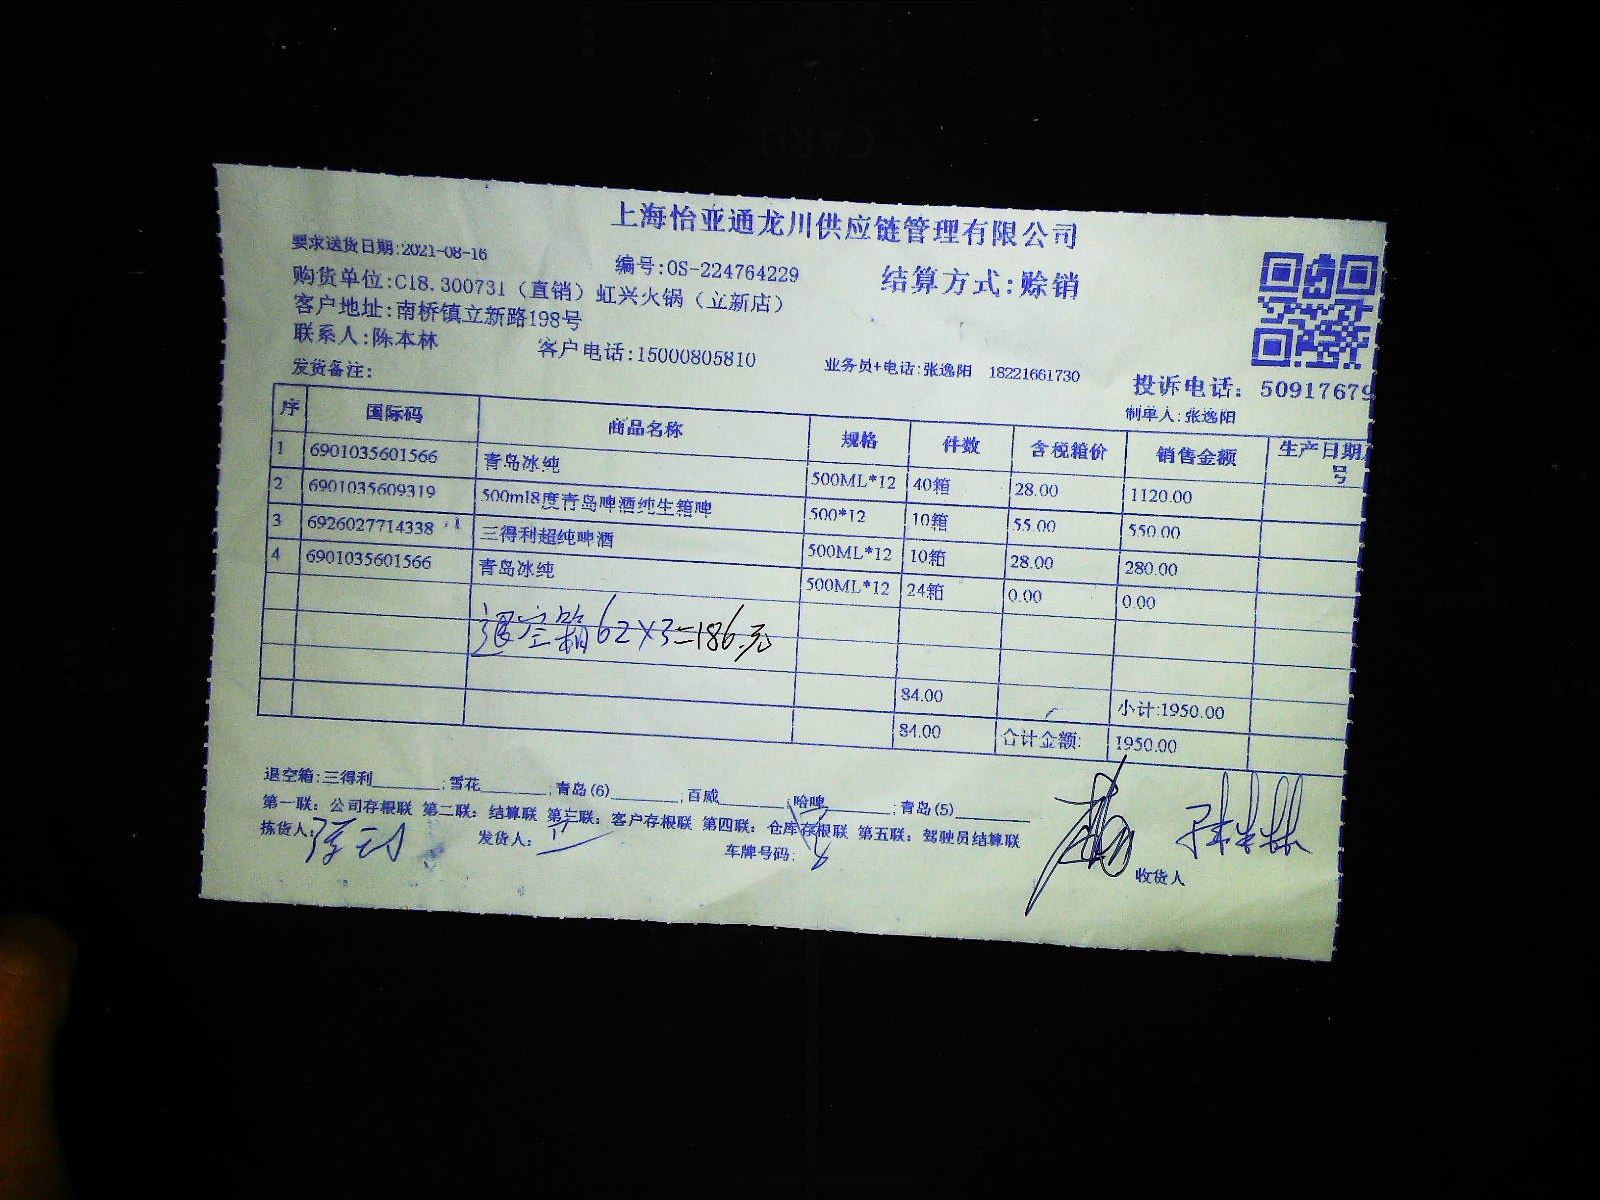 上海怡亚通龙川供应链管理有限公司
要求送货日期:2021-08-16
编号:OS-224764229
结算方式:赊销
购货单位:C18.300731（直销）虹兴火锅（立新店）
客户地址:南桥镇立新路198号
联系人:陈本林
客户电话:15000805810
业务员+电话:张逸阳 18221661730
投诉电话: 50917679
发货备注:
制单人:张逸阳
序 国际码 商品名称 规格 件数 含税箱价 销售金额 生产日期 号
1 6901035601566 青岛冰纯 500ML*12 40箱 28.00 1120.00
2 6901035609319 500ml8度青岛啤酒纯生箱啤 500*12 10箱 55.00 550.00
3 6926027714338 三得利超纯啤酒 500ML*12 10箱 28.00 280.00
4 6901035601566 青岛冰纯 500ML*12 24箱 0.00 0.00
退空箱62×3=186元
84.00 小计:1950.00
84.00 合计金额: 1950.00
退空箱:三得利________;雪花________;青岛(6)________;百威________;哈啤________;青岛(5)________
第一联：公司存根联 第二联：结算联 第三联：客户存根联 第四联：仓库存根联 第五联：驾驶员结算联
拣货人:
发货人:
车牌号码:
收货人
陈本林